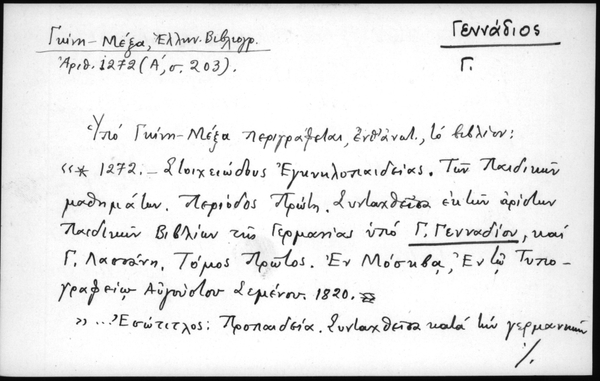 Γκίνη-Μέξα, Ἑλλην. Βιβλιογρ.
Ἀριθ. 1272 (Α΄, σ. 203).
Γεννάδιος
Γ.
Ὑπό Γκίνη-Μέξα περιγράφεται, ἐνθ' ἀνωτ., τό βιβλίον:
«* 1272. – Στοιχειώδους Ἐγκυκλοπαιδείας. Τῶν Παιδικῶν
μαθημάτων. Περίοδος Πρώτη. Συνταχθεῖσα ἐκ τῶν ἀρίστων
Παιδικῶν Βιβλίων τῆς Γερμανίας ὑπό Γ. Γενναδίου, καί
Γ. Λασσάνη. Τόμος Πρῶτος. Ἐν Μόσκβᾳ, Ἐν τῷ Τυπο-
γραφείῳ Αὐγούστου Σεμένου. 1820.
» ... Ἐσώτιτλος: Προπαιδεία. Συνταχθεῖσα κατά τήν γερμανικήν
./.